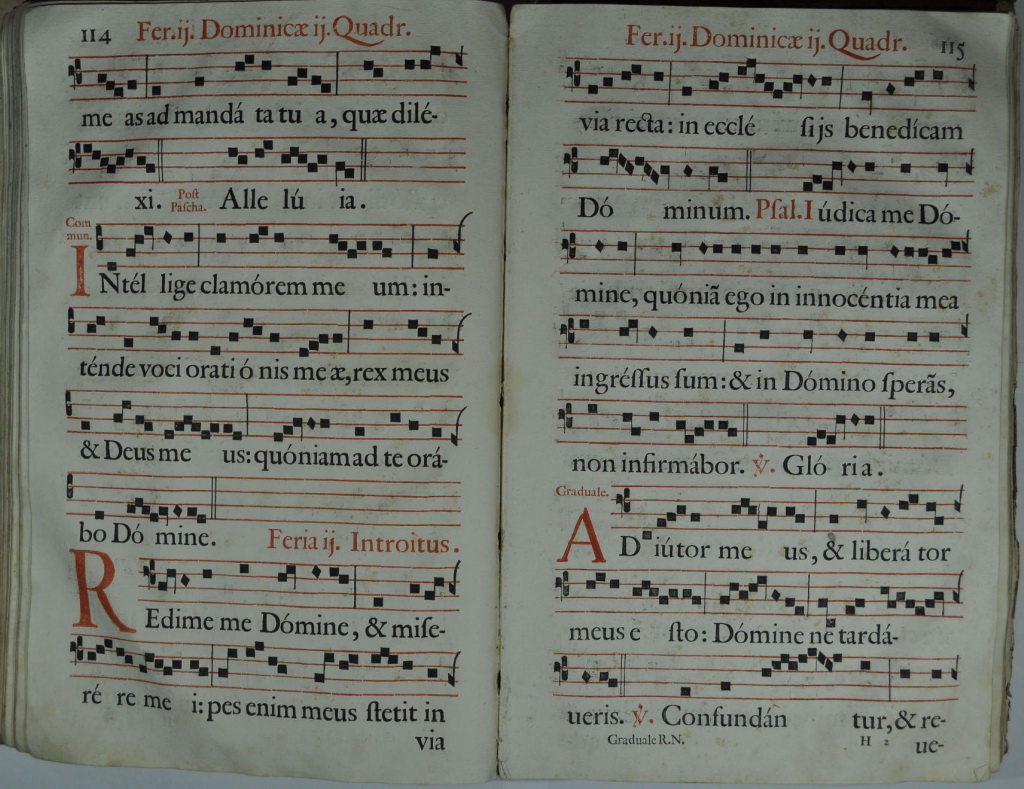 114 Fer.ij. Dominicæ ij. Quadr.
me as ad mandá ta tu a, quæ dilé-
xi. Post Pascha. Alle lú ia.
Com mun.
INtél lige clamórem me um: in-
ténde voci orati ó nis me æ, rex meus
& Deus me us: quóniam ad te orá-
bo Dó mine. Feria ij. Introitus.
REdime me Dómine, & mise-
ré re me i: pes enim meus ſtetit in
via
Fer.ij. Dominicæ ij. Quadr. 115
via recta: in ecclé ſijs benedícam
Dó minum. Pſal. Iúdica me Dó-
mine, quóniã ego in innocéntia mea
ingréſſus ſum: & in Dómino ſperãs,
non infirmábor. ℣. Gló ria.
Graduale.
ADiútor me us, & liberá tor
meus e ſto: Dómine ne tardá-
ueris. ℣. Confundán tur, & re-
Graduale R.N. H 2 ue-